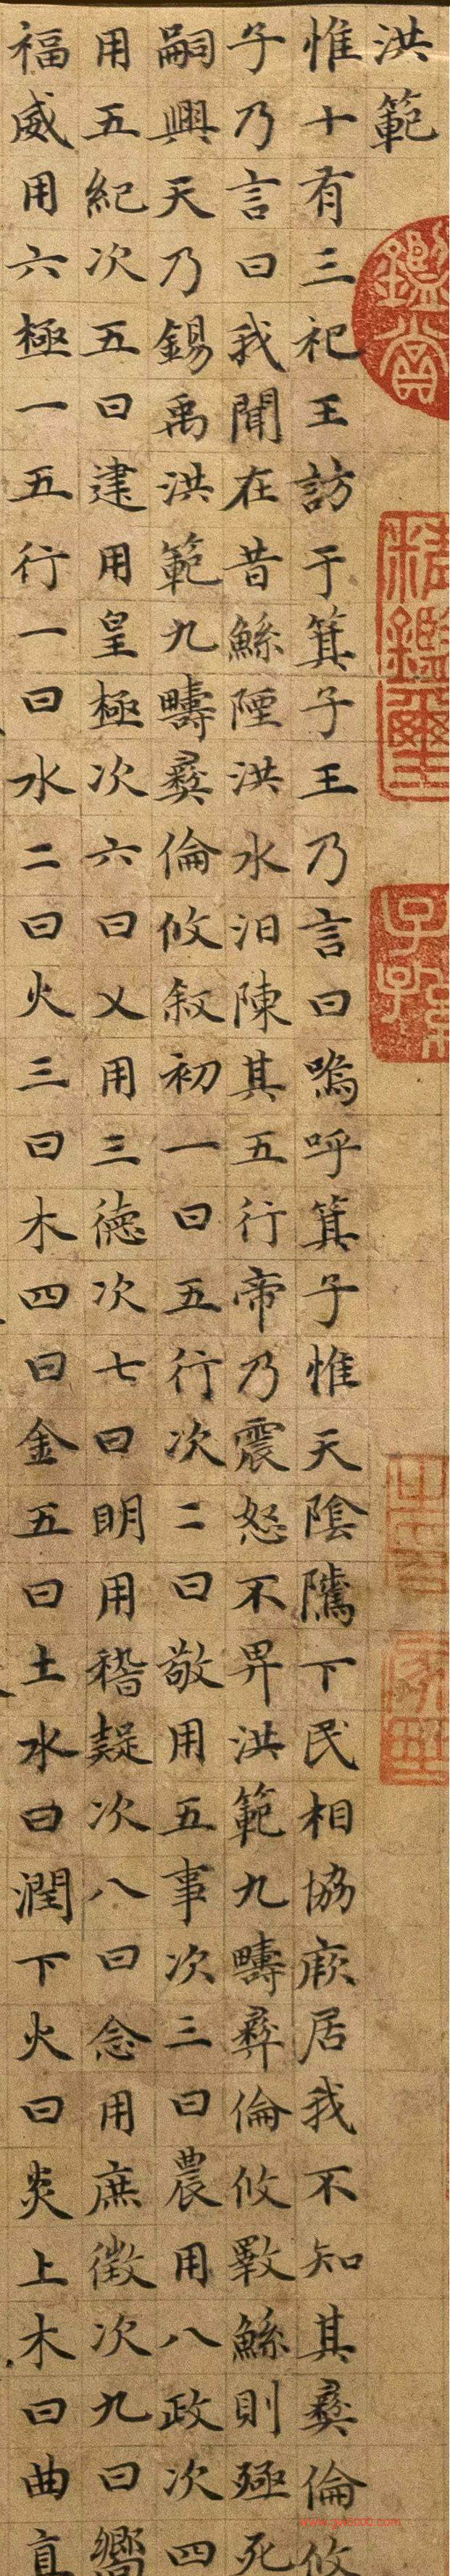 洪範
惟十有三祀王訪于箕子王乃言曰嗚呼箕子惟天陰隲下民相協厥居我不知其彝倫攸
子乃言曰我聞在昔鯀陻洪水汩陳其五行帝乃震怒不畀洪範九疇彝倫攸斁鯀則殛死
嗣興天乃錫禹洪範九疇彝倫攸敘初一曰五行次二曰敬用五事次三曰農用八政次四
用五紀次五曰建用皇極次六曰乂用三德次七曰明用稽疑次八曰念用庶徵次九曰嚮
福威用六極一五行一曰水二曰火三曰木四曰金五曰土水曰潤下火曰炎上木曰曲直
鑑賞
精鑑璽
子孫